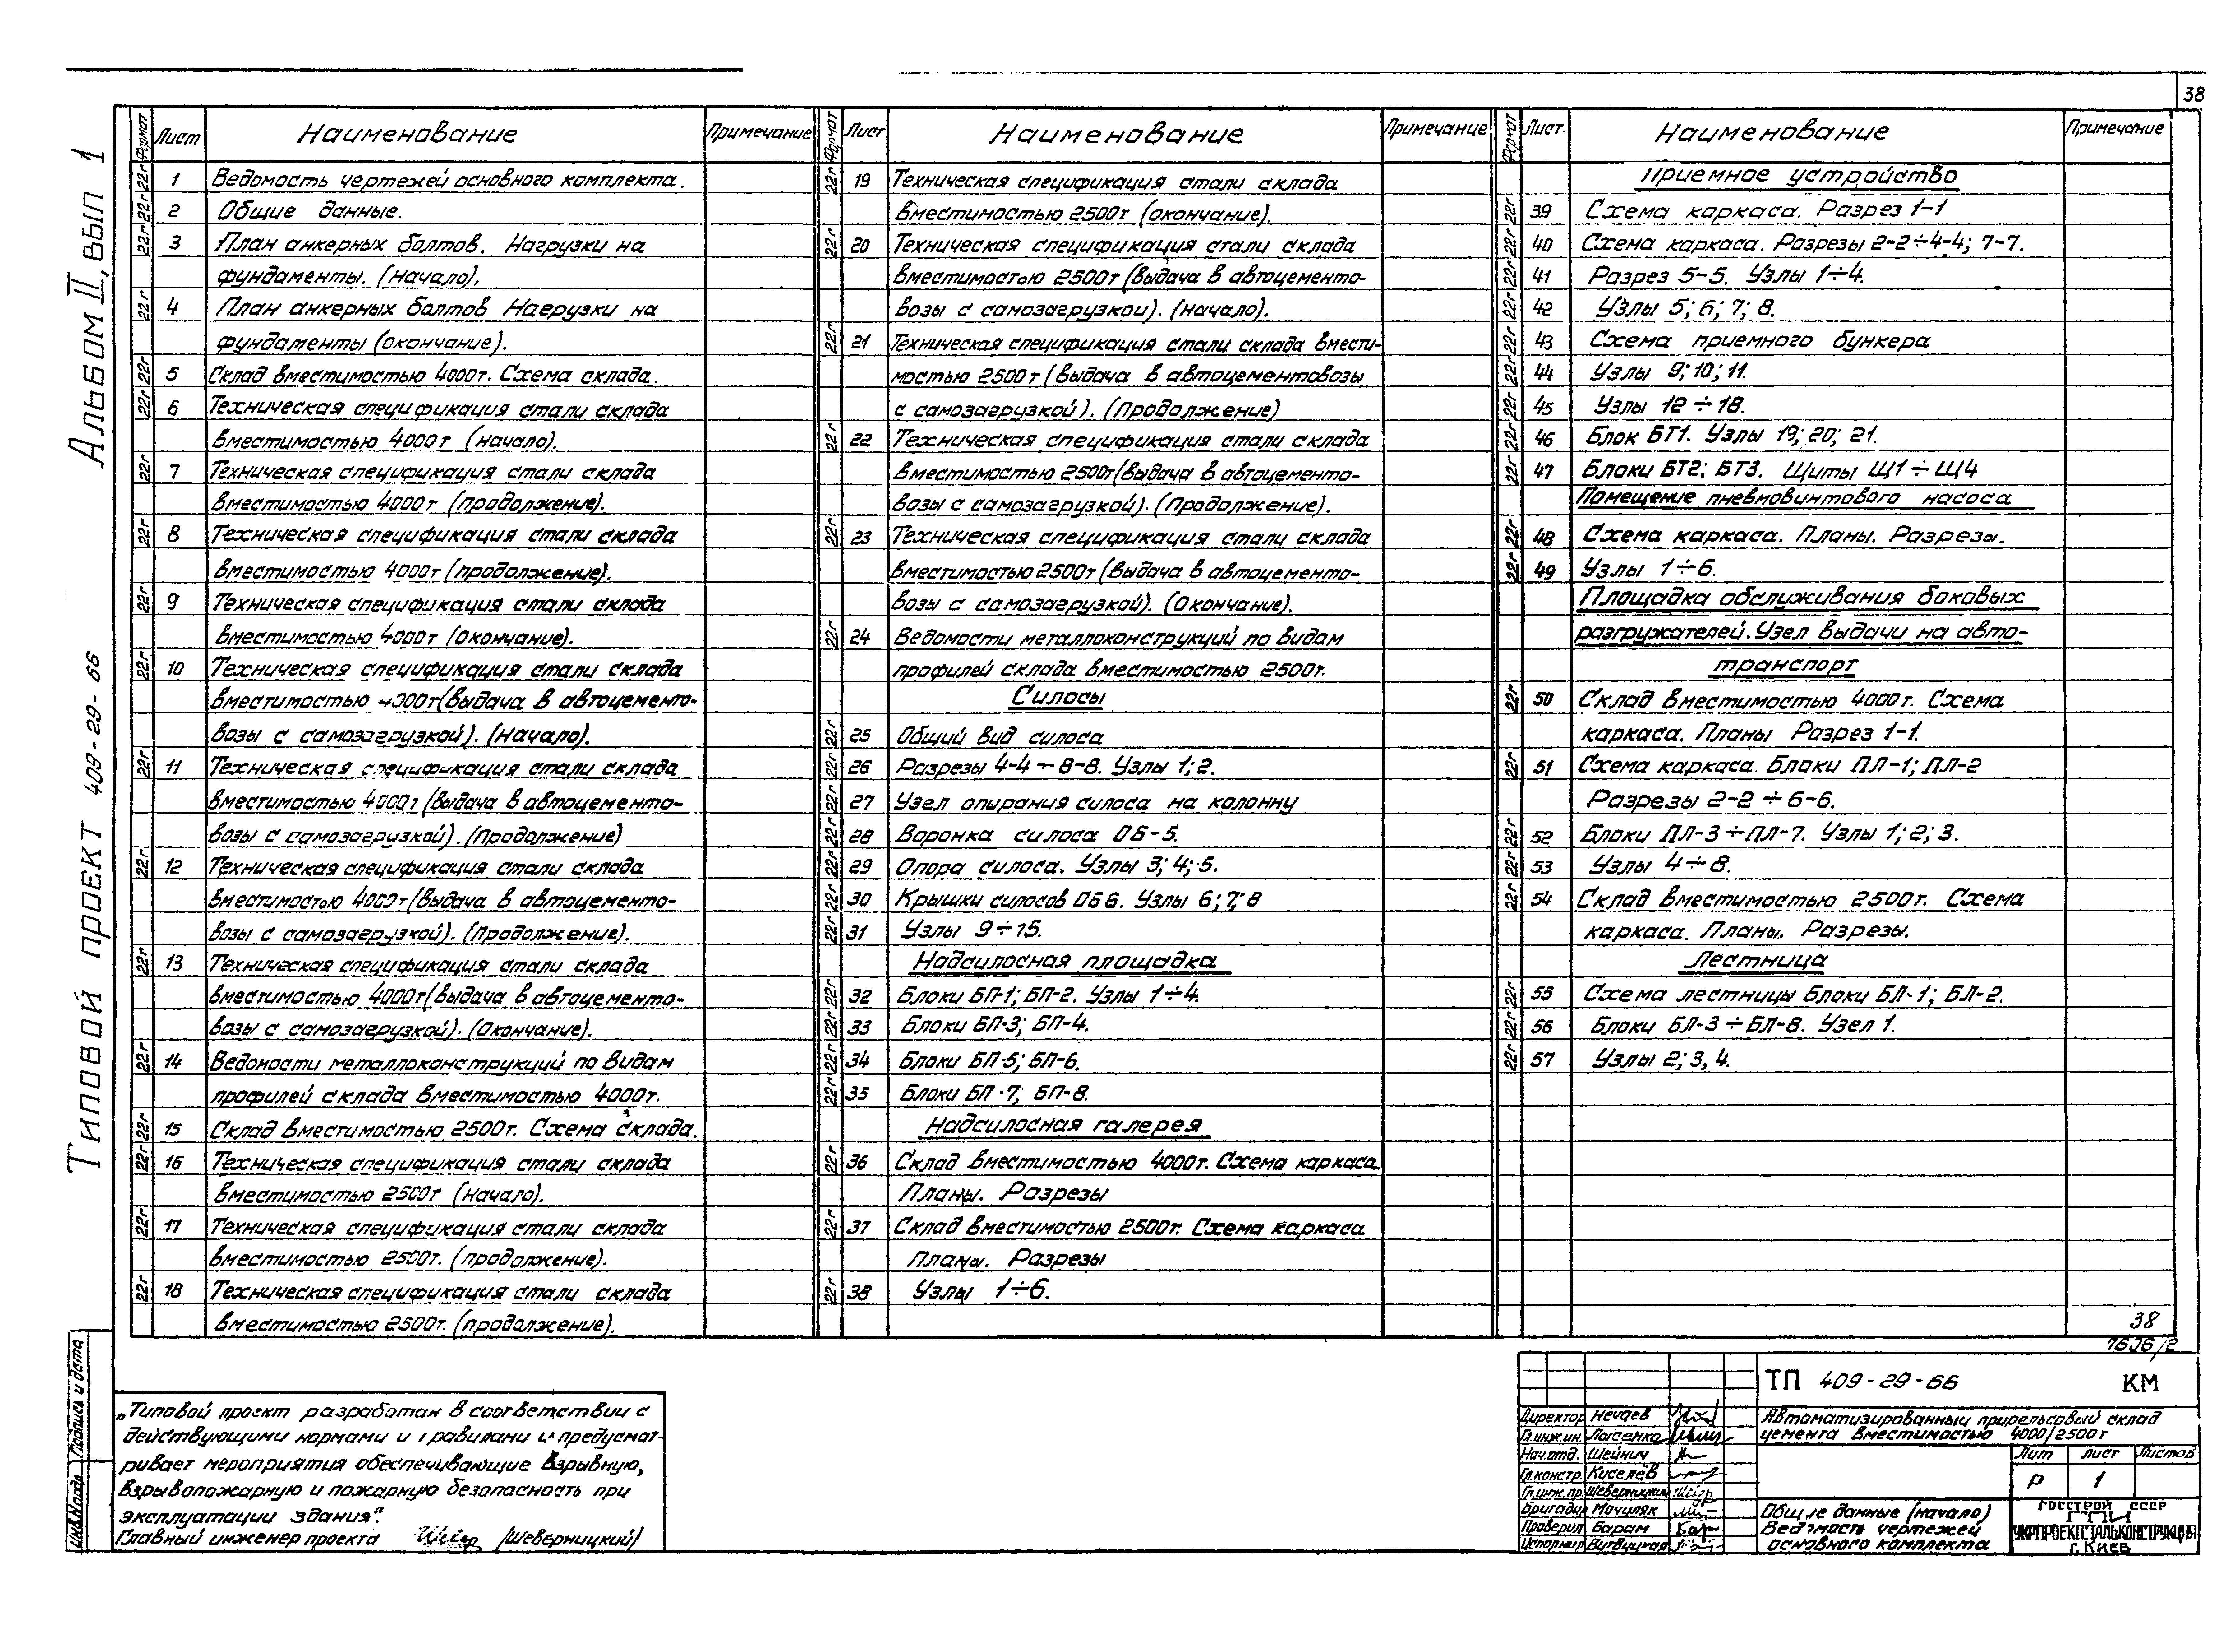 38
Альбом II, вып 1
Типовой проект 409-29-66
Формат Лист Наименование Примечание
22г 1 Ведомость чертежей основного комплекта.
22г 2 Общие данные.
22г 3 План анкерных болтов. Нагрузки на
фундаменты. (начало).
22г 4 План анкерных болтов Нагрузки на
фундаменты (окончание).
22г 5 Склад вместимостью 4000т. Схема склада.
22г 6 Техническая спецификация стали склада
вместимостью 4000т (начало).
22г 7 Техническая спецификация стали склада
вместимостью 4000т (продолжение).
22г 8 Техническая спецификация стали склада
вместимостью 4000т (продолжение).
22г 9 Техническая спецификация стали склада
вместимостью 4000т (окончание).
22г 10 Техническая спецификация стали склада
вместимостью 4000т (выдача в автоцементо-
возы с самозагрузкой). (Начало).
22г 11 Техническая спецификация стали склада
вместимостью 4000т (выдача в автоцементо-
возы с самозагрузкой). (Продолжение)
22г 12 Техническая спецификация стали склада
вместимостью 4000т (выдача в автоцементо-
возы с самозагрузкой). (Продолжение).
22г 13 Техническая спецификация стали склада
вместимостью 4000т (выдача в автоцементо-
возы с самозагрузкой). (Окончание).
22г 14 Ведомости металлоконструкций по видам
профилей склада вместимостью 4000т.
22г 15 Склад вместимостью 2500т. Схема склада.
22г 16 Техническая спецификация стали склада
вместимостью 2500т (начало).
22г 17 Техническая спецификация стали склада
вместимостью 2500т. (продолжение).
22г 18 Техническая спецификация стали склада
вместимостью 2500т. (продолжение).
Формат Лист Наименование Примечание
22г 19 Техническая спецификация стали склада
вместимостью 2500т (окончание).
22г 20 Техническая спецификация стали склада
вместимостью 2500т (выдача в автоцементо-
возы с самозагрузкой). (начало).
22г 21 Техническая спецификация стали склада вмести-
мостью 2500т (выдача в автоцементовозы
с самозагрузкой). (Продолжение)
22г 22 Техническая спецификация стали склада
вместимостью 2500т (выдача в автоцементо-
возы с самозагрузкой). (Продолжение).
22г 23 Техническая спецификация стали склада
вместимостью 2500т (выдача в автоцементо-
возы с самозагрузкой). (Окончание).
22г 24 Ведомости металлоконструкций по видам
профилей склада вместимостью 2500т.
Силосы
22г 25 Общий вид силоса
22г 26 Разрезы 4-4 ÷ 8-8. Узлы 1; 2.
22г 27 Узел опирания силоса на колонну
22г 28 Воронка силоса ОБ-5.
22г 29 Опора силоса. Узлы 3; 4; 5.
22г 30 Крышки силосов ОБ6. Узлы 6; 7; 8
22г 31 Узлы 9÷15.
Надсилосная площадка
22г 32 Блоки БП-1; БП-2. Узлы 1÷4.
22г 33 Блоки БП-3; БП-4.
22г 34 Блоки БП-5; БП-6.
22г 35 Блоки БП-7; БП-8.
Надсилосная галерея
22г 36 Склад вместимостью 4000т. Схема каркаса.
Планы. Разрезы
22г 37 Склад вместимостью 2500т. Схема каркаса
Планы. Разрезы
22г 38 Узлы 1÷6.
Формат Лист. Наименование Примечание
Приемное устройство
22г 39 Схема каркаса. Разрез 1-1
22г 40 Схема каркаса. Разрезы 2-2÷4-4; 7-7.
22г 41 Разрез 5-5. Узлы 1÷4.
22г 42 Узлы 5; 6; 7; 8.
22г 43 Схема приемного бункера
22г 44 Узлы 9; 10; 11.
22г 45 Узлы 12÷18.
22г 46 Блок БТ1. Узлы 19; 20; 21.
22г 47 Блоки БТ2; БТ3. Щиты Щ1÷Щ4
Помещение пневмовинтового насоса
22г 48 Схема каркаса. Планы. Разрезы.
22г 49 Узлы 1÷6.
Площадка обслуживания боковых
разгружателей. Узел выдачи на авто-
транспорт
22г 50 Склад вместимостью 4000т. Схема
каркаса. Планы Разрез 1-1.
22г 51 Схема каркаса. Блоки ПЛ-1; ПЛ-2
Разрезы 2-2 ÷ 6-6.
22г 52 Блоки ПЛ-3÷ПЛ-7. Узлы 1; 2; 3.
22г 53 Узлы 4÷8.
22г 54 Склад вместимостью 2500т. Схема
каркаса. Планы. Разрезы.
Лестница
22г 55 Схема лестницы Блоки БЛ-1; БЛ-2.
22г 56 Блоки БЛ-3÷БЛ-8. Узел 1.
22г 57 Узлы 2; 3, 4.
38
Инв.№подл. Подпись и дата
„Типовой проект разработан в соответствии с
действующими нормами и правилами и предусмат-
ривает мероприятия обеспечивающие взрывную,
взрывопожарную и пожарную безопасность при
эксплуатации здания".
Главный инженер проекта /Шеверницкий/
ТП 409-29-66 КМ
Директор Нечаев
Гл.инж.ин. Лысенко
Нач.отд. Шейнич
Гл.констр. Киселёв
Гл.инж.пр. Шеверницкий
Бригадир Мочуляк
Проверил Барам
Автоматизированный прирельсовый склад
цемента вместимостью 4000/2500т
Лит Лист Листов
Р 1
Общие данные (начало)
Ведомость чертежей
основного комплекта
ГОССТРОЙ СССР
ГПИ
УКРПРОЕКТСТАЛЬКОНСТРУКЦИЯ
г. Киев